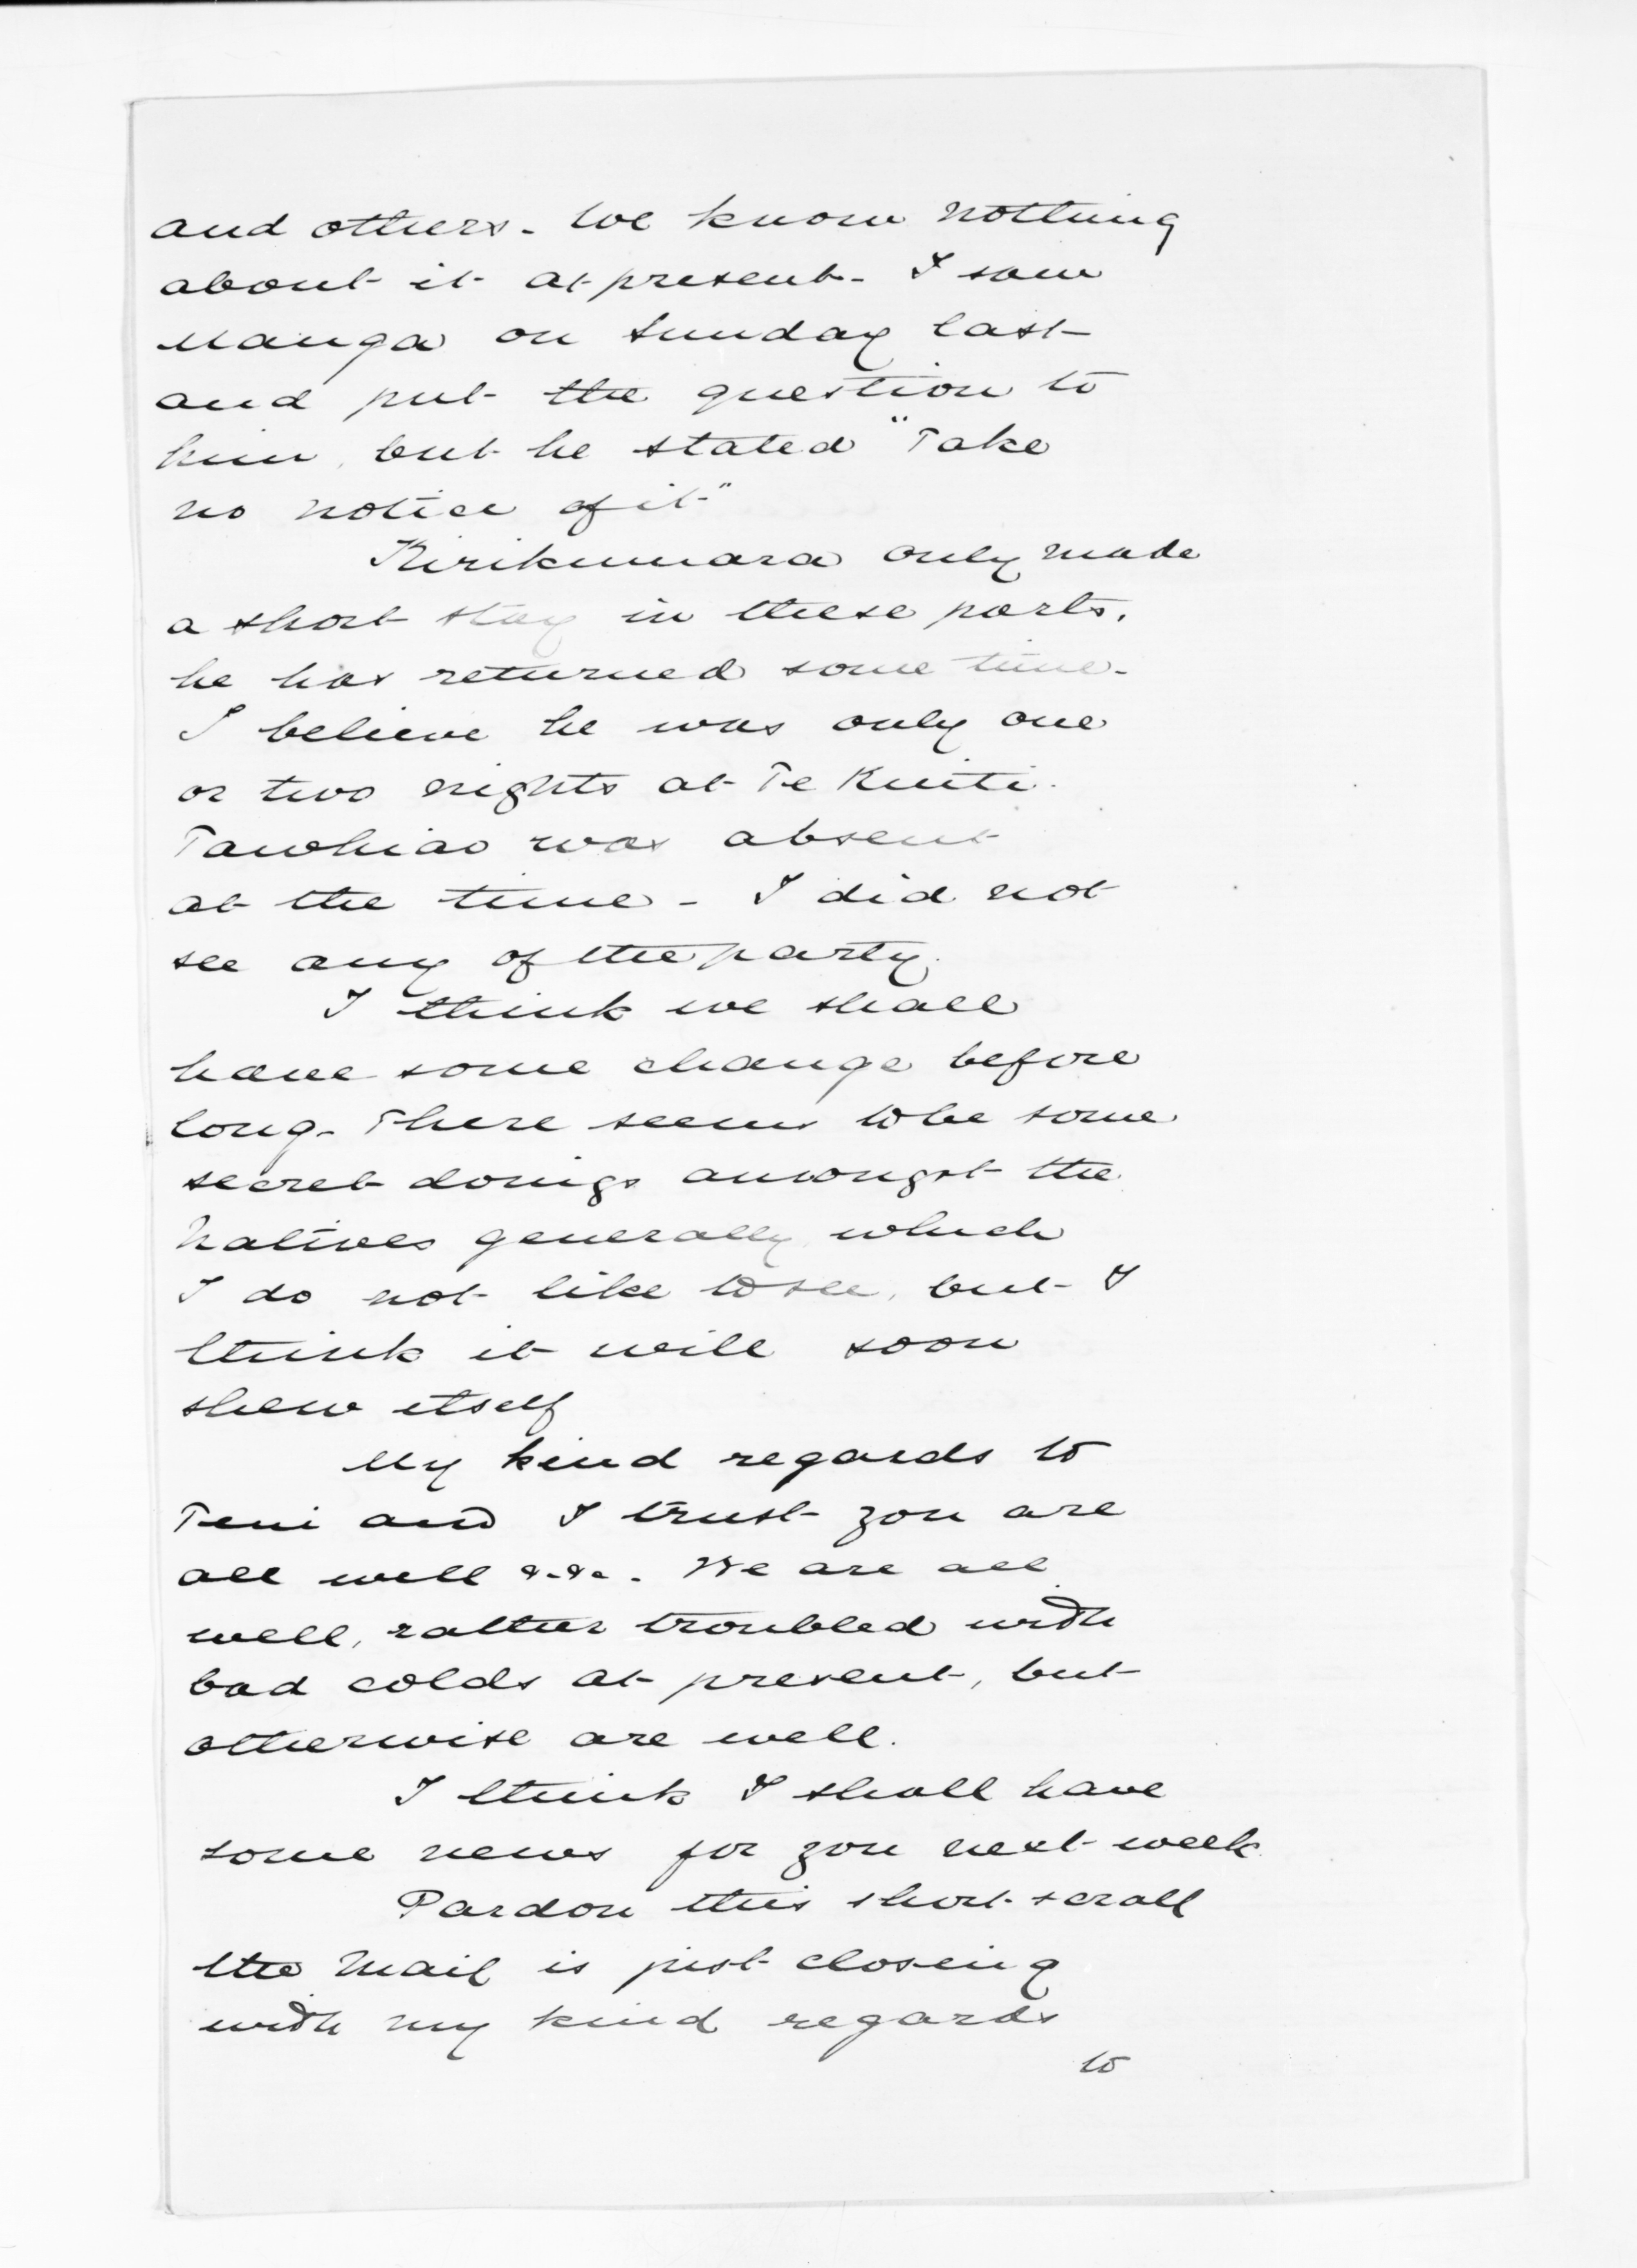 and others. We know nothing
about it at present. I saw
Manga on Sunday last
and put the question to
him, but he stated "Take
no notice of it"
Kirikumara only made
a short stay in these parts,
he has returned some time.
I believe he was only one
or two nights at Te Kuiti.
Tawhiao was absent
at the time - I did not
see any of the party.
I think we shall
have some change before
long. There seems to be some
secret doings amongst the
Natives generally which
I do not like to see, but I
think it will soon
shew itself
My kind regards to
and I trust you are
all well &c. &c. We are all
well, rather troubled with
bad colds at present, but
otherwise are well.
I think I shall have
some news for you next week
Pardon this short scrall
the Mail is just closing
with my kind regards
to